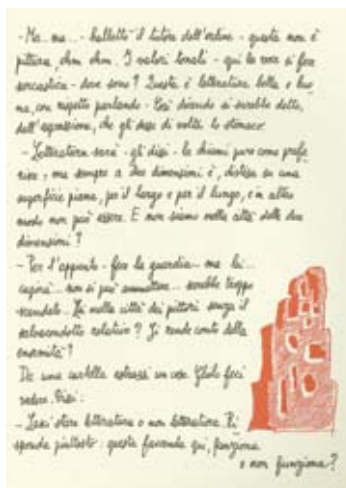 - Ma.. ma... - balbettò il tutore dell'ordine - questa non è
pittura, ehm ehm. I valori tonali - qui la voce si fece
sarcastica - dove sono? Questa è letteratura bella e buo_
na, con rispetto parlando - Così dicendo si sarebbe detto,
dall'espressione, che gli desse di volta lo stomaco.
- Letteratura sarà - gli dissi - la chiami pure come prefe_
risce, ma sempre a due dimensioni è, distesa su una
superficie piana, per il largo e per il lungo, e in altro
modo non può essere. E non siamo nella città delle due
dimensioni?
- Per l'appunto - fece la guardia - ma lei...
capirà... non si può ammettere... sarebbe troppo
scandalo. Lei nella città dei pittori senza il
salvacondotto relativo? Si rende conto della
enormità?
Da una cartella estrassi un coso. Glielo feci
vedere. Dissi:
- Lasci stare letteratura o non letteratura. Ri_
sponda piuttosto: questa faccenda qui, funziona
o non funziona?